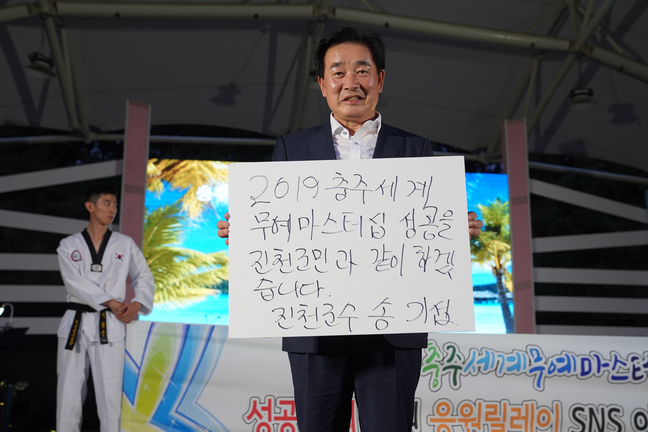 2019 충주세계
무예마스터십 성공을
진천군민과 같이 하겠
습니다.
진천군수 송기섭
충주세계무예마스터
성공
응원릴레이 SNS